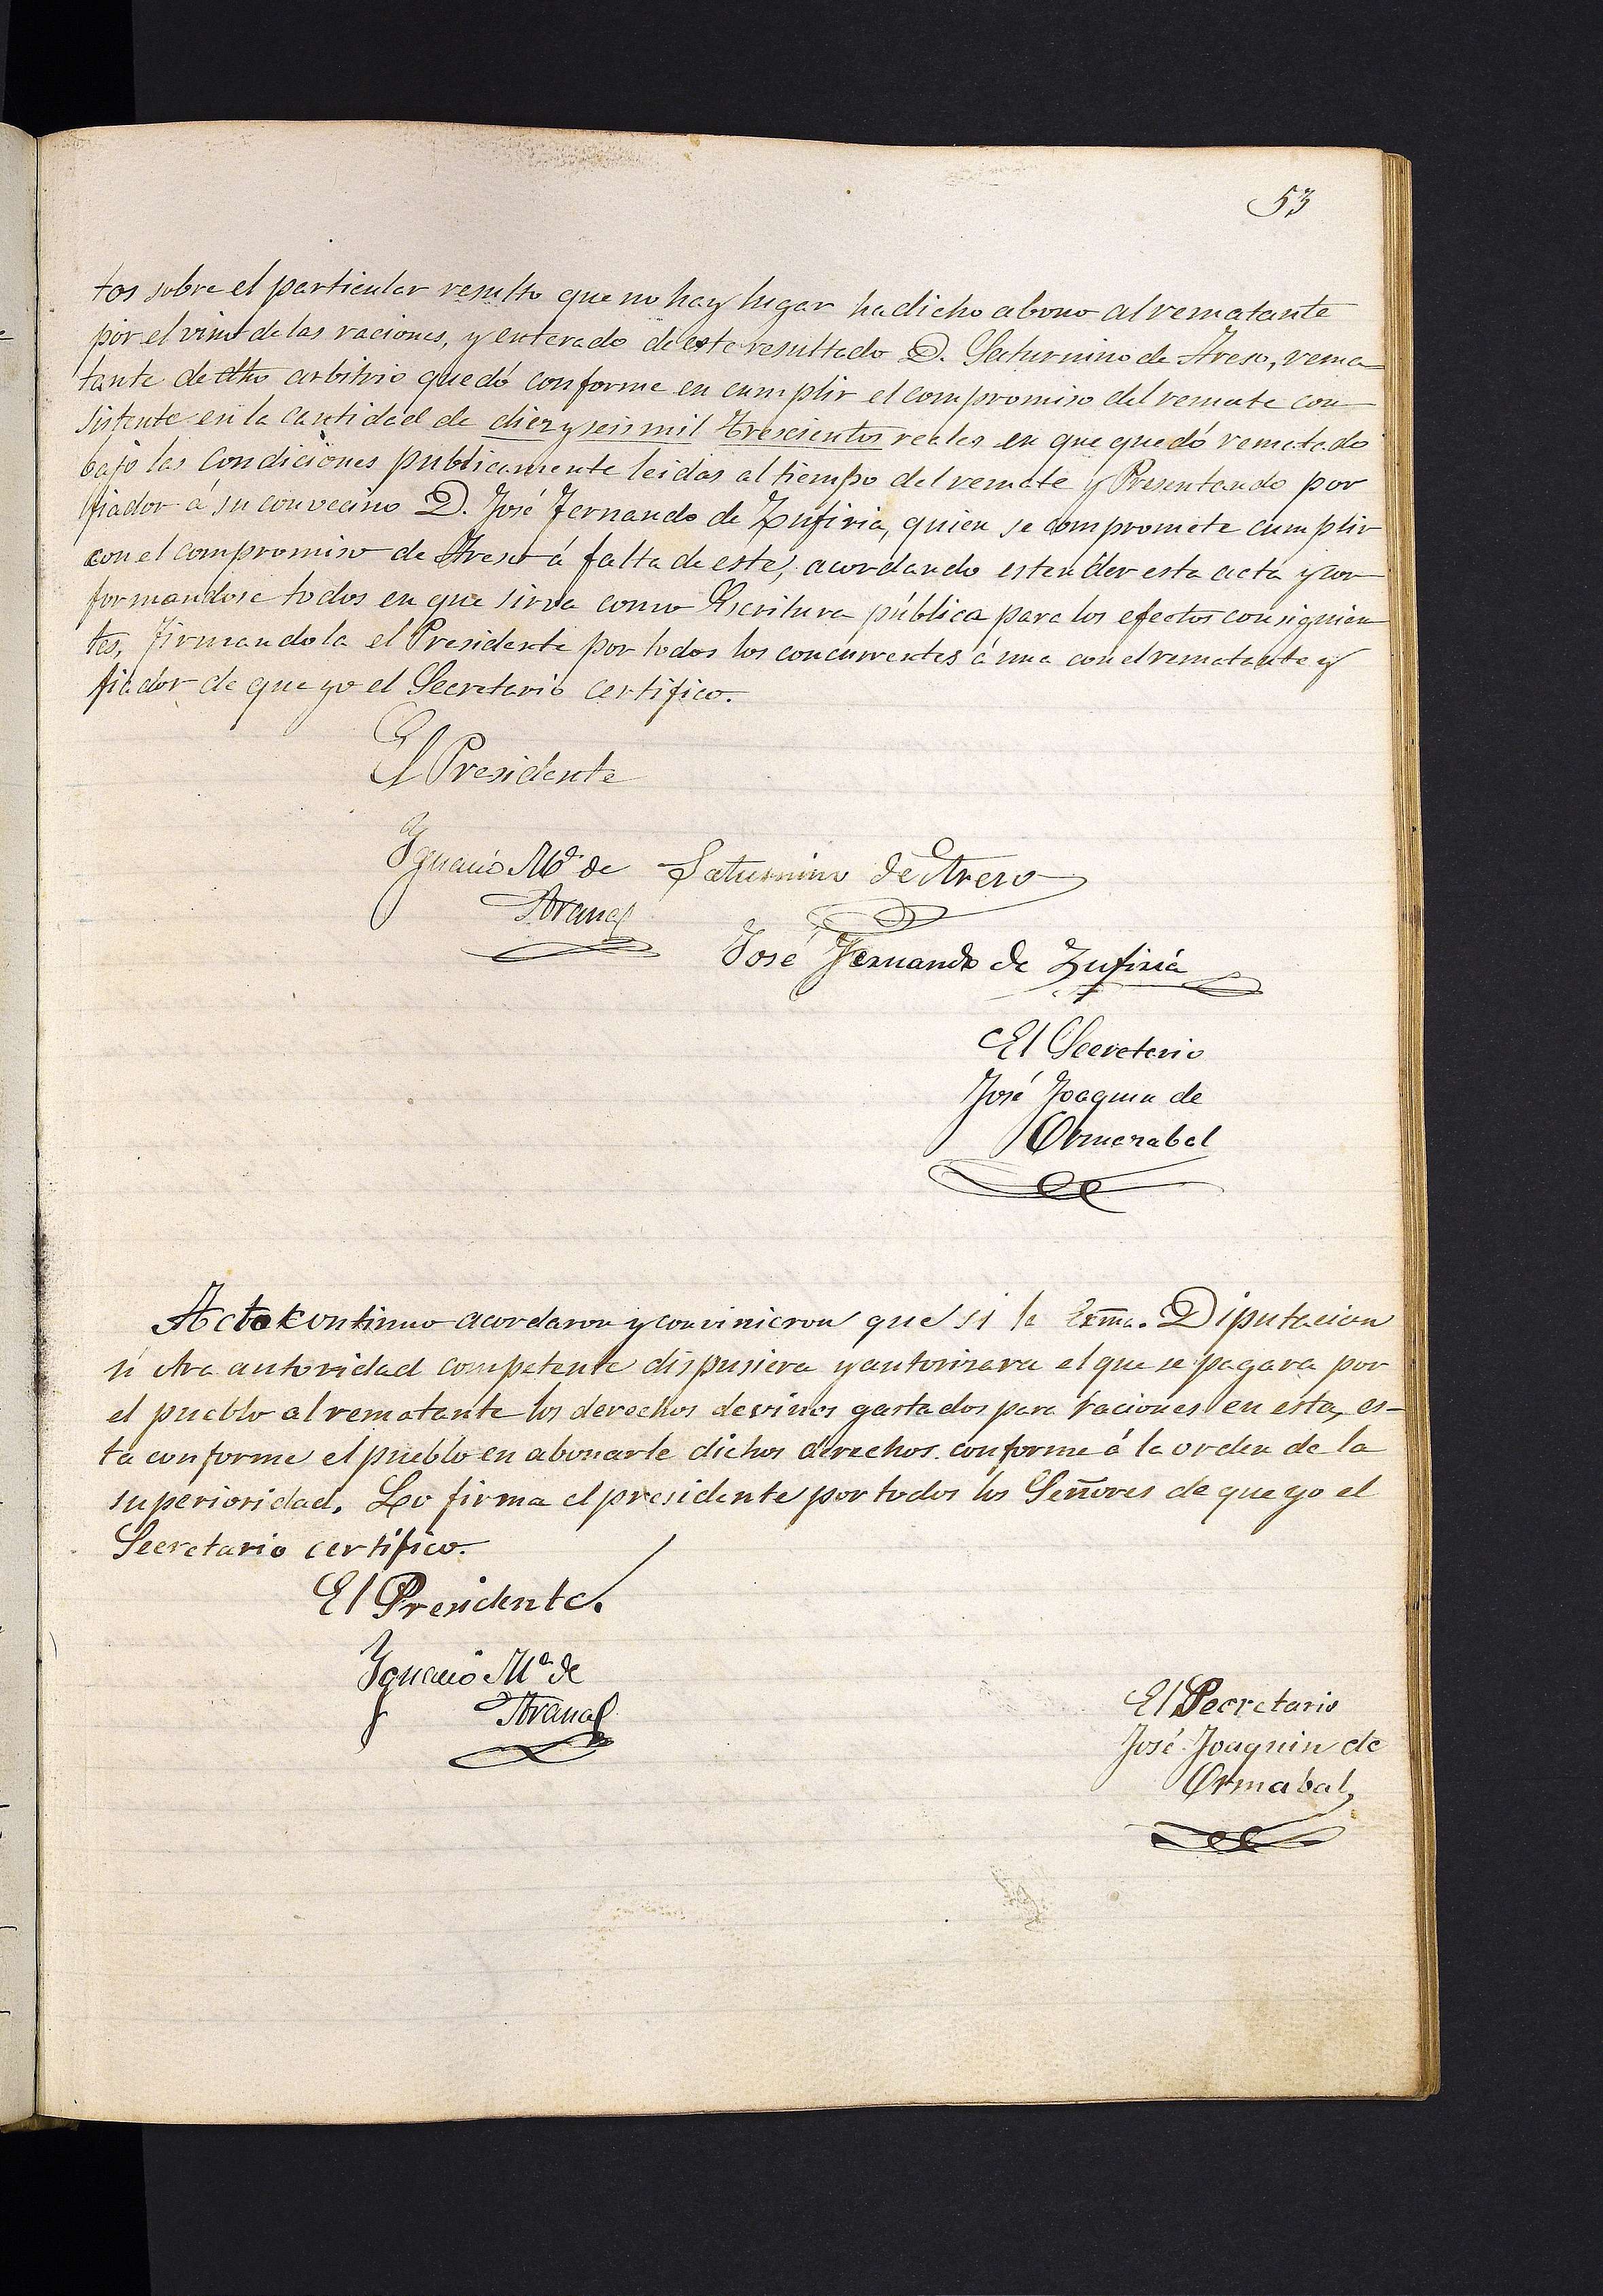 53
tos sobre el particular resulto que no hay lugar ha dicho abono al rematante
por el vino de las raciones, y enterado de este resultado D. Saturnino de Areso, rema-
tante de dho arbitrio quedó conforme en cumplir el compromiso del remate con-
sistente en la cantidad de diez y seis mil trescientos reales en que quedó rematado
bajo las condiciones publicamente leidas al tiempo del remate y Presentando por
fiador á su convecino D. José Fernando de Zufiria, quien se compromete cumplir
con el compromiso de Areso á falta de este, acordando estender esta acta y con-
formandose todos en que sirva como Escritura pública para los efectos consiguien-
tes, firmandola el Presidente por todos los concurrentes á una con el rematante y
fiador de que yo el Secretario certifico.
El Presidente
Ygnacio Mª de Saturnino de Areso
Arana
José Fernando de Zufiria
El Secretario
José Joaquin de
Ormazabal
Acto continuo acordaron y convinieron que si la Exma. Diputacion
ú otra autoridad competente dispusiera y autorizara el que se pagara por
el pueblo al rematante los derechos de vinos gastados para raciones en esta, es-
ta conforme el pueblo en abonarle dichos derechos conforme á la orden de la
superioridad. Lo firma el presidente por todos los Señores de que yo el
Secretario certifico.
El Presidente.
Ygnacio Mª de
Arana
El Secretario
José Joaquin de
Ormabal